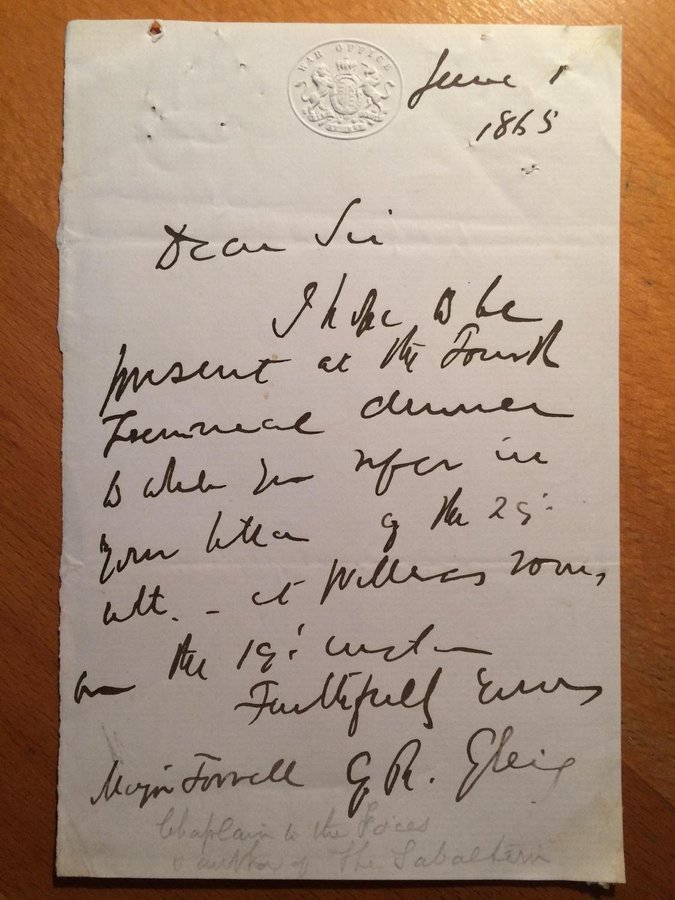 WAR OFFICE
June 1
1865
Dear Sir
I hope to be
present at the Fourth
Triennial dinner
to which you refer in
your letter of the 29:
ult. - at Willis's rooms,
on the 19: instan
Faithfully yours
Major G. R. Gleig
Chaplain to the Forces
& author of "The Subaltern